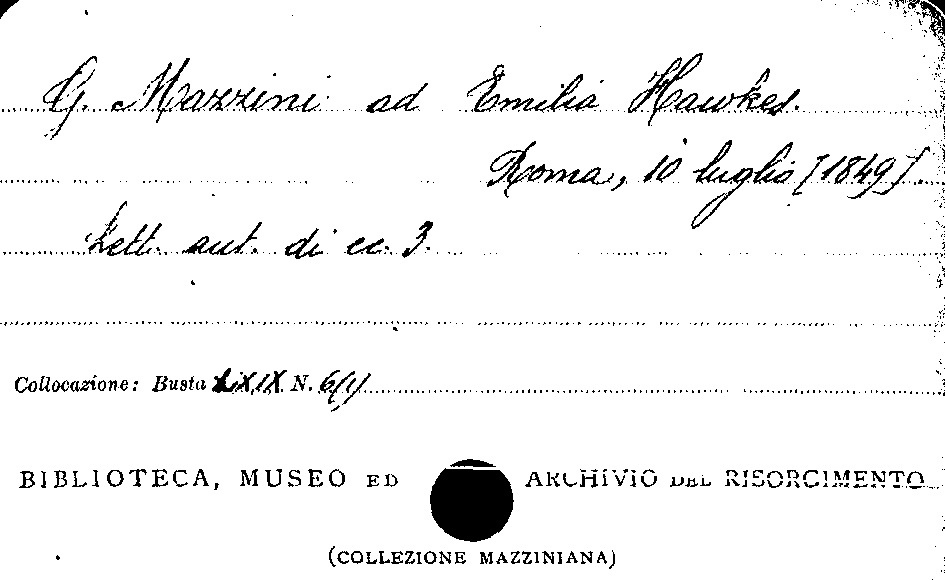 G. Mazzini ad Emilia Hawkes.
Roma, 10 luglio [1849].
Lett. aut. di cc. 3.
Collocazione: Busta N. 6/1/
BIBLIOTECA, MUSEO ED ARCHIVIO DEL RISORGIMENTO
(COLLEZIONE MAZZINIANA)